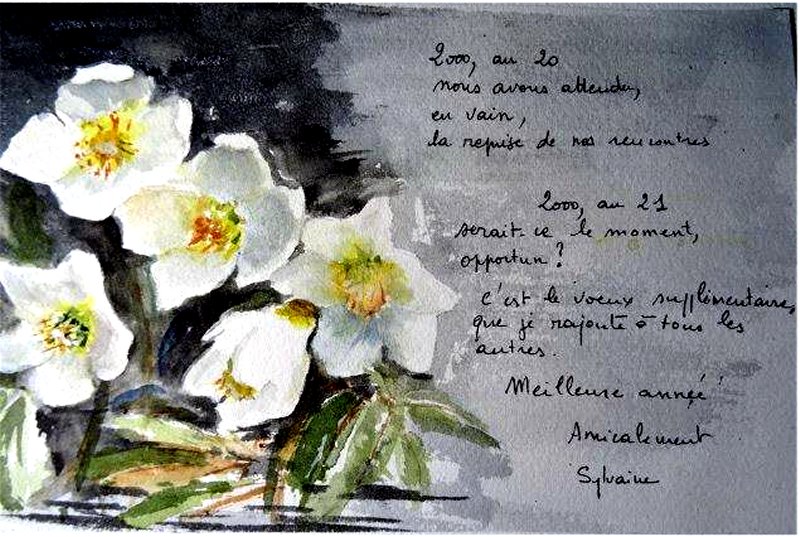 2000, an 20
nous avons attendu,
en vain,
la reprise de nos rencontres
2000, an 21
serait-ce le moment,
opportun ?
C'est le voeux supplémentaire,
que je rajoute à tous les
autres.
Meilleure année !
Amicalement
Sylvaine